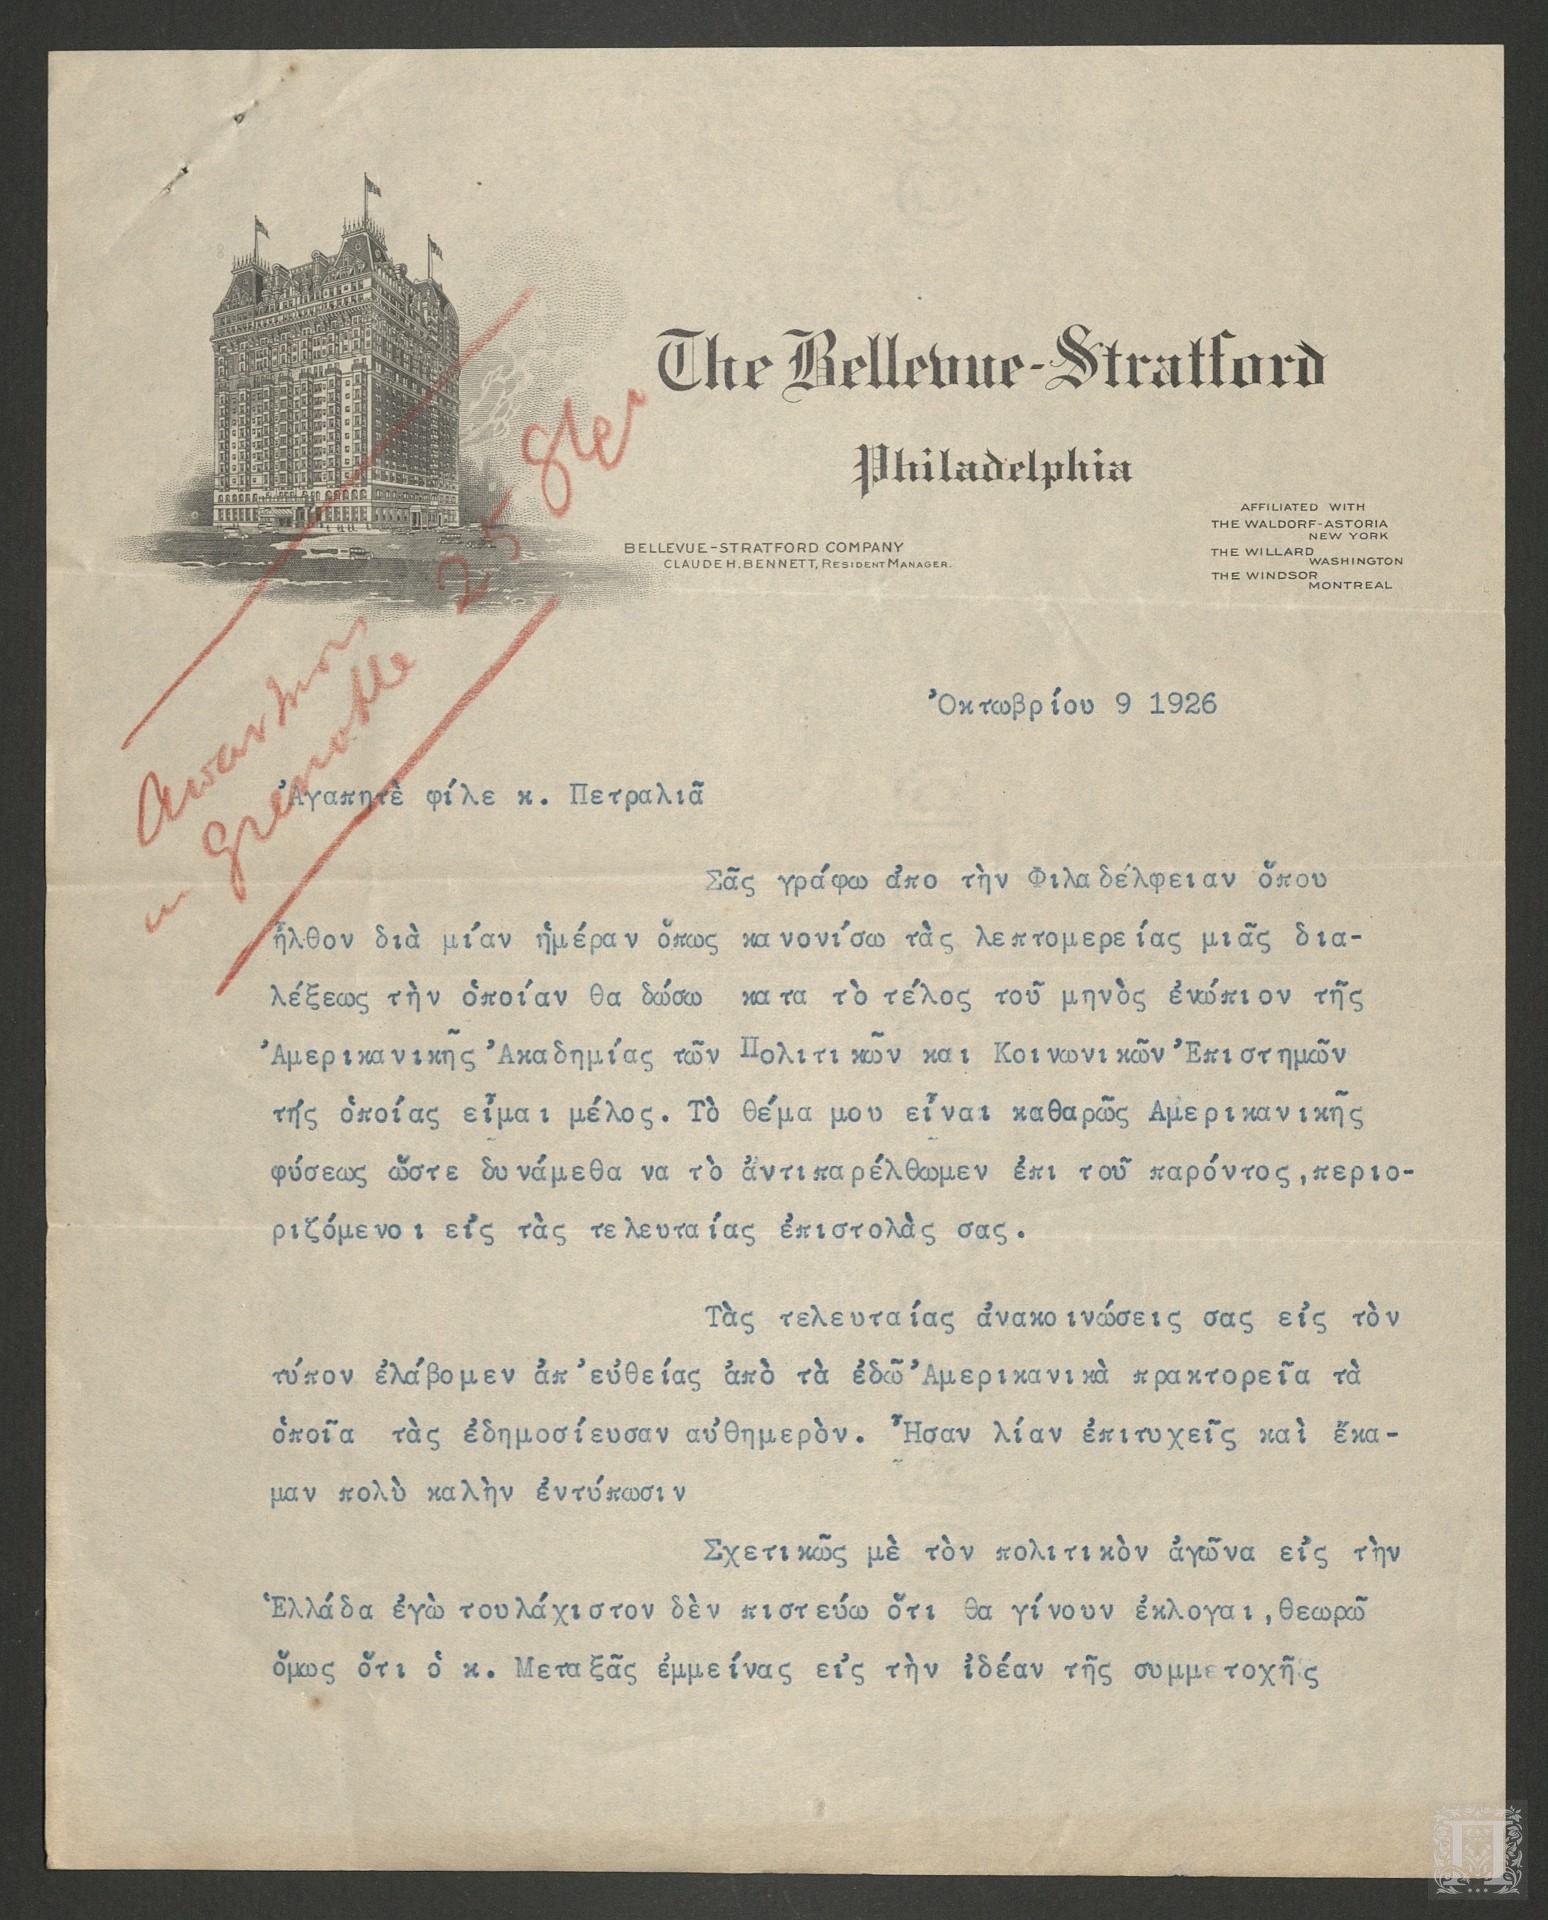 The Bellevue-Stratford
Philadelphia
AFFILIATED WITH
THE WALDORF-ASTORIA
NEW YORK
THE WILLARD
WASHINGTON
THE WINDSOR
MONTREAL
BELLEVUE-STRATFORD COMPANY
CLAUDE H. BENNETT, RESIDENT MANAGER.
25
Grenoble
Ὀκτωβρίου 9 1926
Ἀγαπητὲ φίλε κ. Πετραλιᾶ
Σᾶς γράφω ἀπο τὴν Φιλαδέλφειαν ὅπου
ἦλθον διὰ μίαν ἡμέραν ὅπως κανονίσω τὰς λεπτομερείας μιᾶς δια-
λέξεως τὴν ὁποίαν θα δώσω κατα τὸ τέλος τοῦ μηνὸς ἐνώπιον τῆς
Ἀμερικανικῆς Ἀκαδημίας τῶν Πολιτικῶν και Κοινωνικῶν Ἐπιστημῶν
τής ὁποίας εἶμαι μέλος. Τὸ θέμα μου εἶναι καθαρῶς Αμερικανικῆς
φύσεως ὥστε δυνάμεθα να τὸ ἀντιπαρέλθωμεν ἐπι τοῦ παρόντος,περιο-
ριζόμενοι εἰς τὰς τελευταίας ἐπιστολὰς σας.
Τὰς τελευταίας ἀνακοινώσεις σας εἰς τὸν
τύπον ἐλάβομεν ἀπ'εὐθείας ἀπὸ τὰ ἐδῶ Ἀμερικανικὰ πρακτορεῖα τὰ
ὁποῖα τὰς ἐδημοσίευσαν αὐθημερὸν. Ἦσαν λίαν ἐπιτυχεῖς καὶ ἔκα-
μαν πολὺ καλὴν ἐντύπωσιν
Σχετικῶς μὲ τὸν πολιτικὸν ἀγῶνα εἰς τὴν
Ἑλλάδα ἐγὼ τουλάχιστον δὲν πιστεύω ὅτι θα γίνουν ἐκλογαι,θεωρῶ
ὅμως ὅτι ὁ κ. Μεταξᾶς ἐμμείνας εἰς τὴν ἰδέαν τῆς συμμετοχῆς